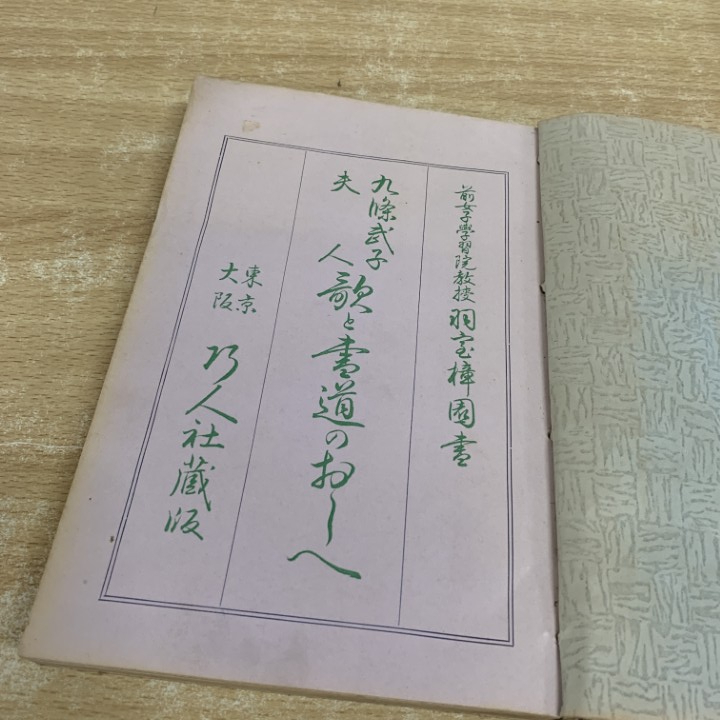 前女子學習院教授 羽室樟園書
九條武子夫人 歌と書道のおしへ
東京
大阪
巧人社蔵版